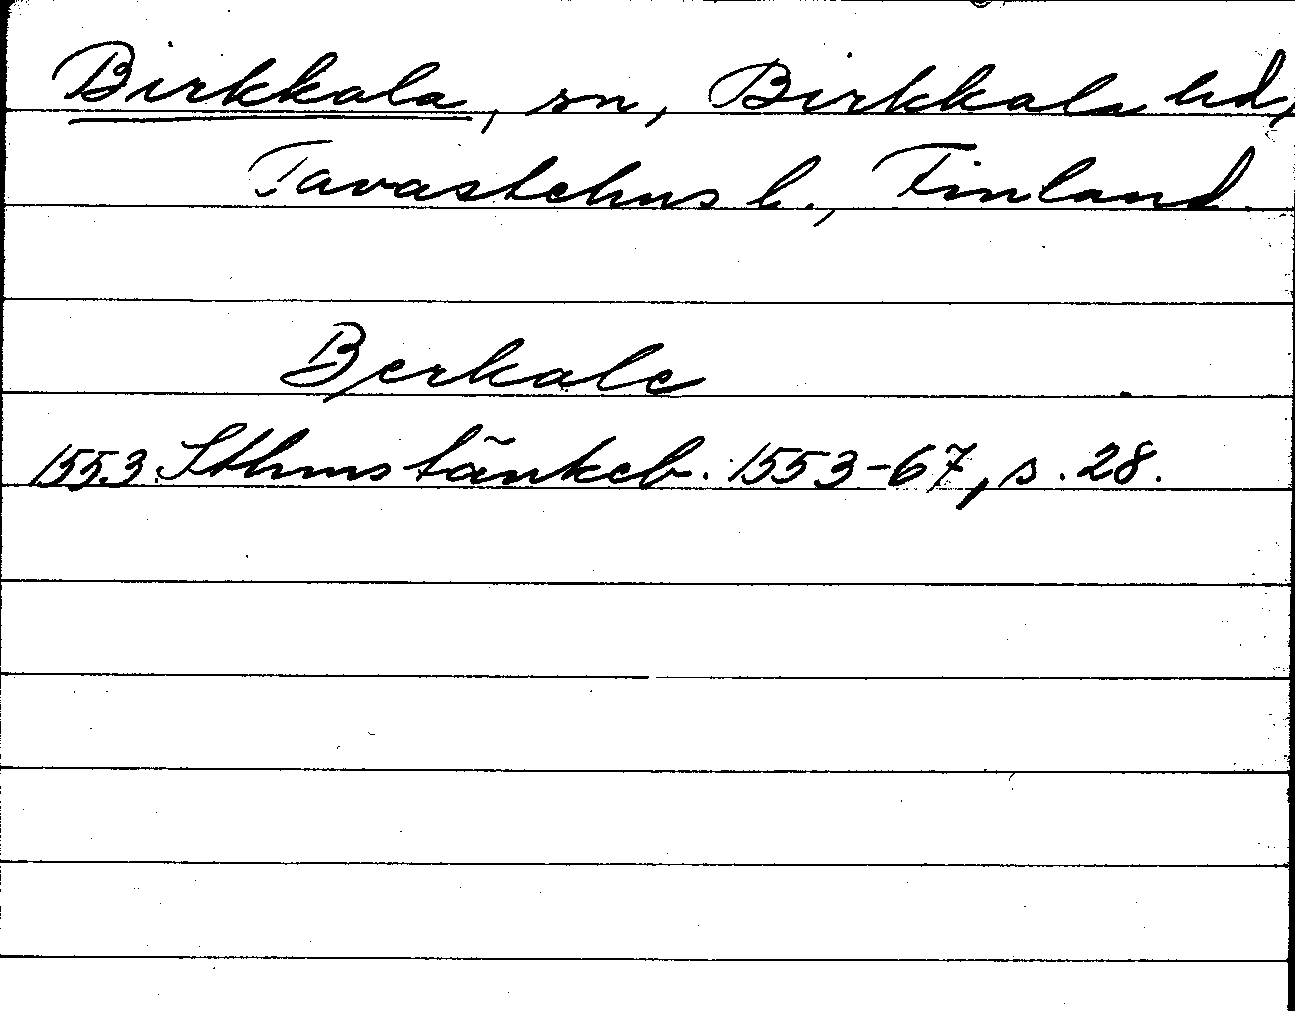 Birkkala, sn, Birkkala hd,
Tavastehus l., Finland.
Berkale
1553 Sthms tänkeb. 1553-67, s. 28.